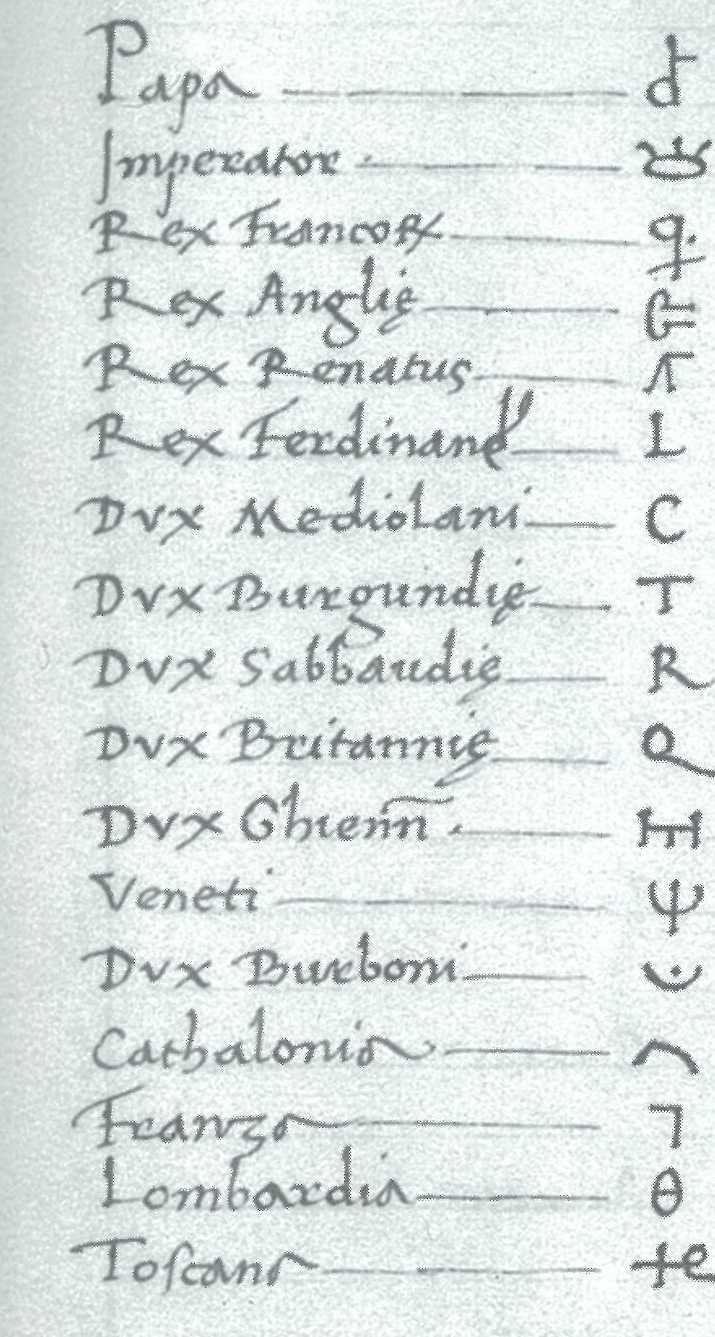 Papa
Imperator
Rex Francoꝝ
Rex Anglię
Rex Renatus
Rex Ferdinand L
Dvx Mediolani C
Dvx Burgundię T
Dvx Sabbaudię R
Dvx Britannię
Dvx Ghienn̄
Veneti Ψ
Dvx Burboni
Cathalonia
Franza
Lombardia θ
Toscana